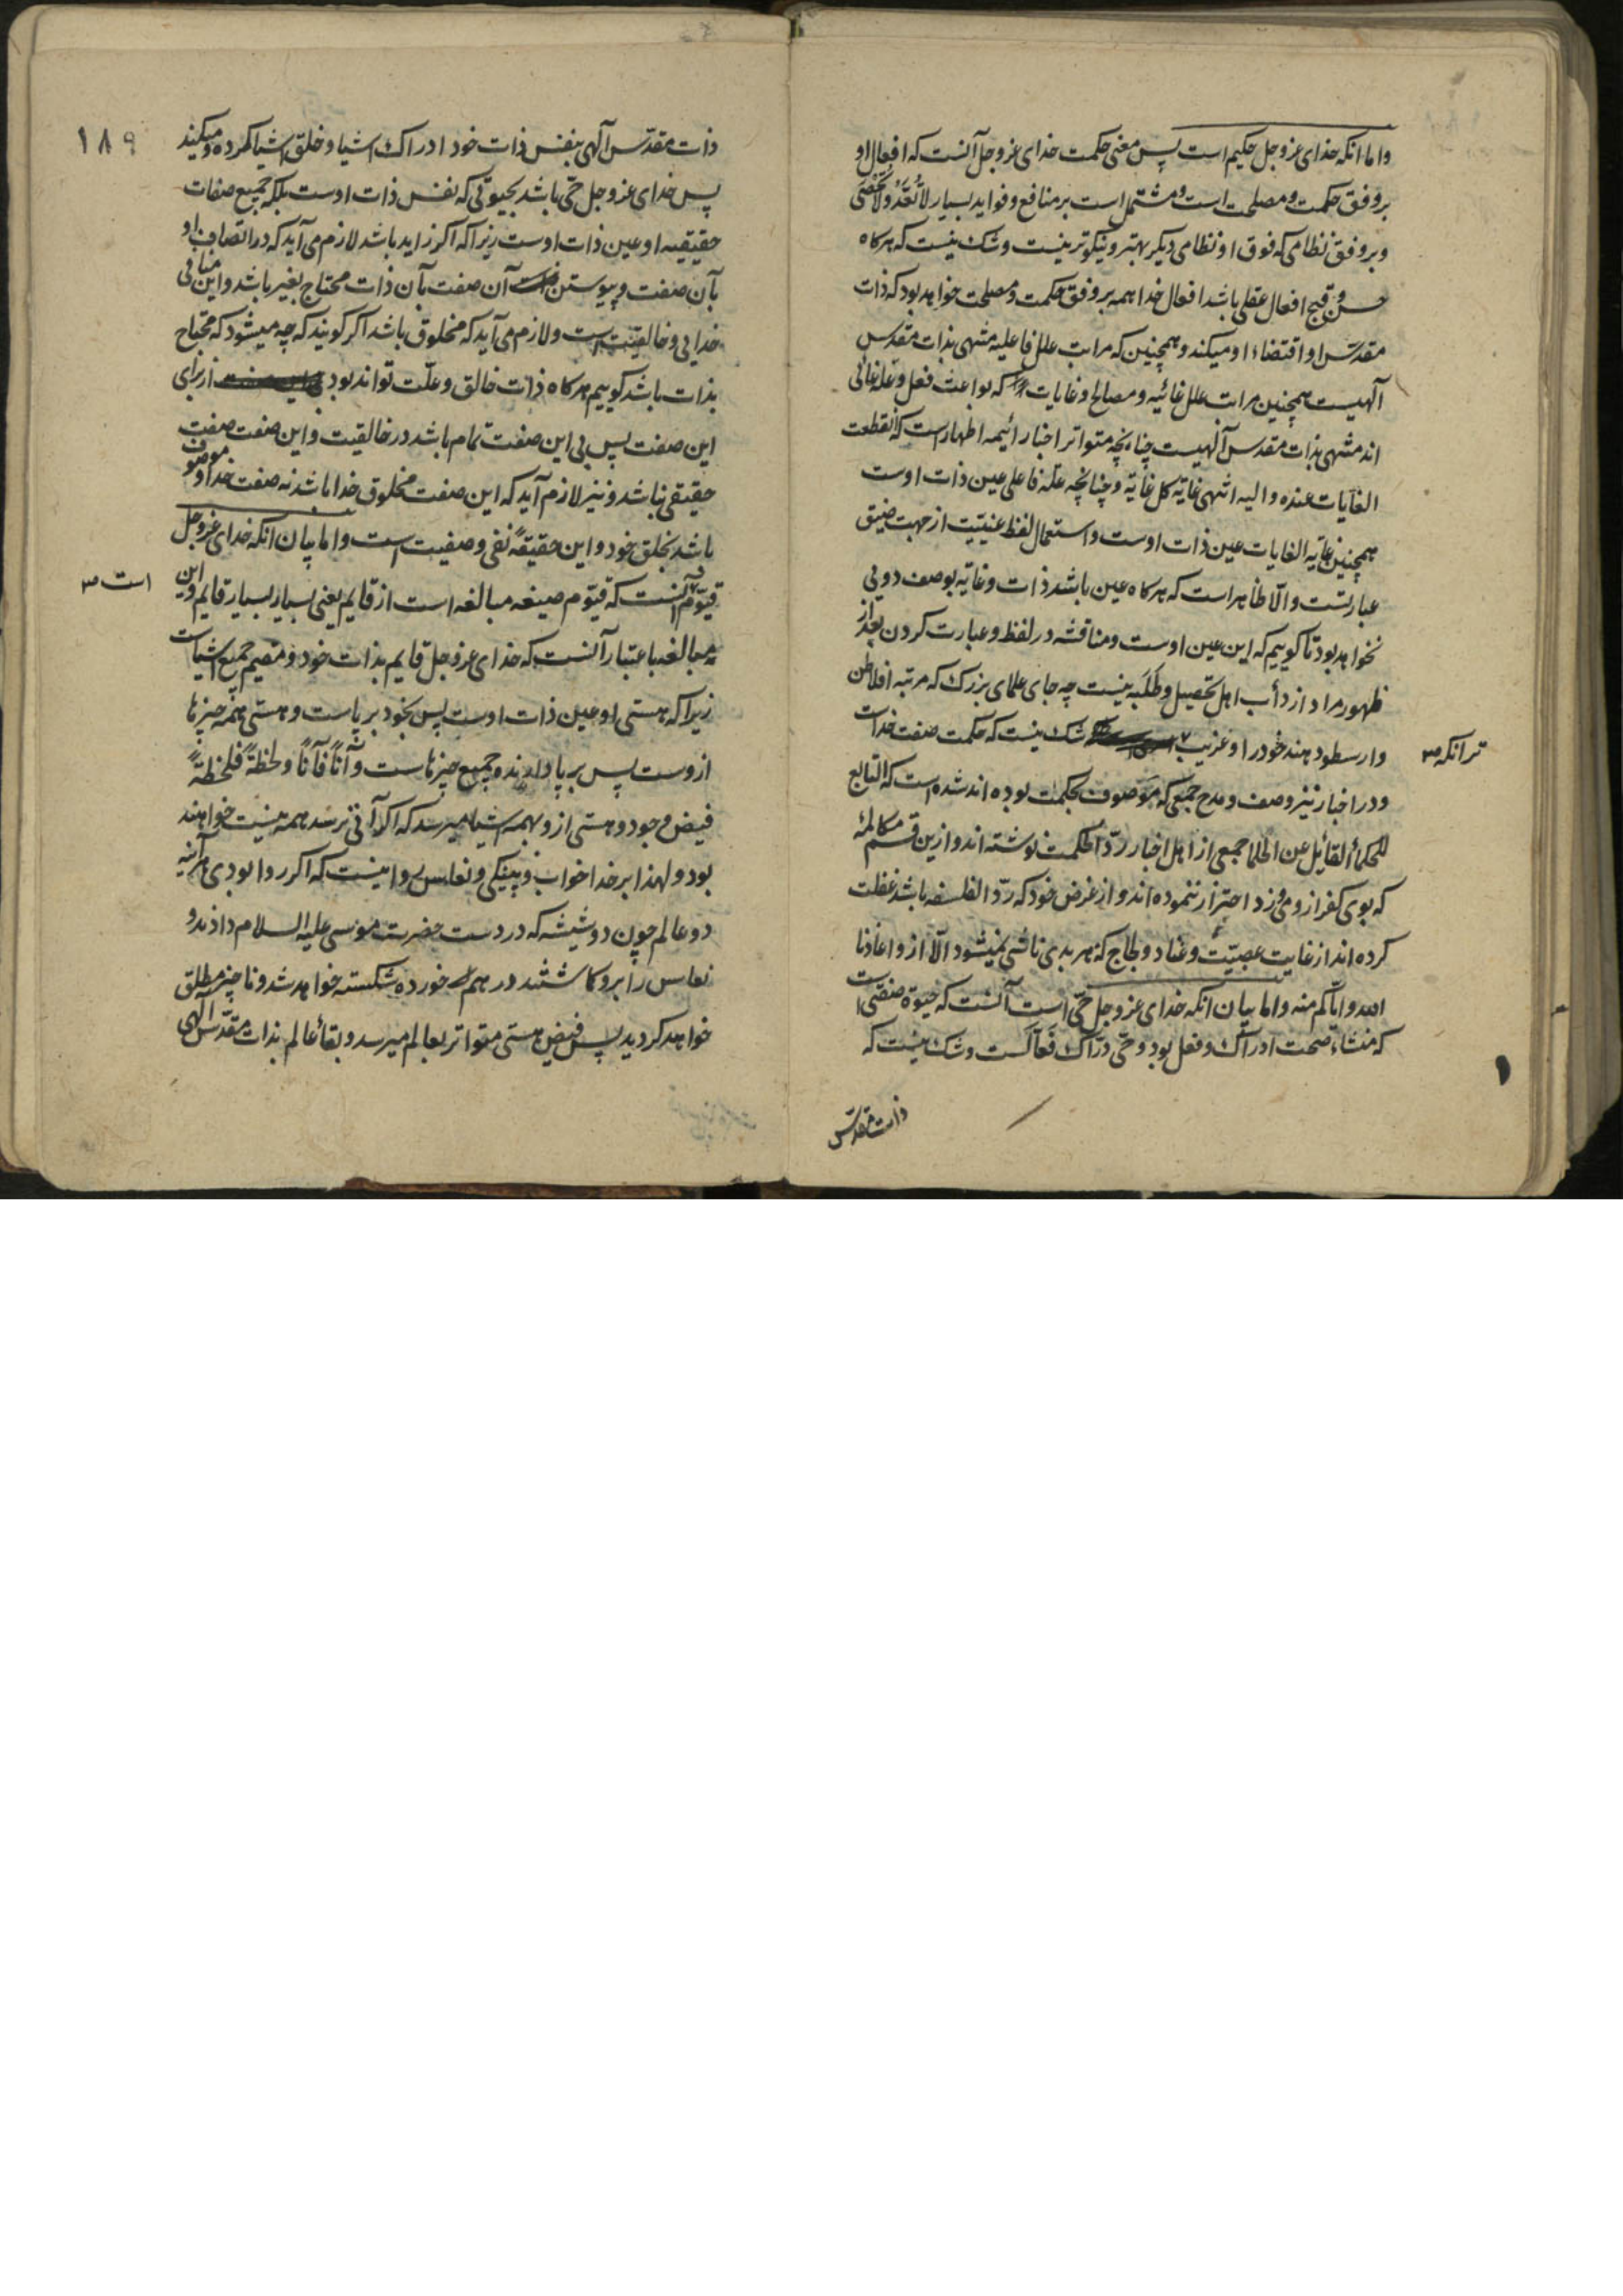 واما انکه خدای عزوجل حکیم است پس معنی حکمت خدای عزوجل آنست که افعال او
بر وفق حکمت و مصلحت است و مشتمل است بر منافع و فواید بسیار لاتُعَدُّ ولاتُحْصَی
و بر وفق نظامی که فوق او نظامی دیکر بهتر و نیکوتر نیست و شک نیست که هرکاه
حسن و قبح افعال عقلی باشد افعال خدا همه بر وفق حکمت و مصلحت خواهد بود که ذات
مقدس او اقتضاء او میکند و همچنین که مراتب علل فاعلیه منتهی بذات مقدس
آلهیست همچنین مراتب علل غائیه و مصالح و غایات که بواعث فعل و علة غائی
اند منتهی بذات مقدس آلهیست چنانچه متواتر اخبار ائیمه اطهار است که انقطعت
الغایات عنده والیه انتهی غایة کل غایة و چنانچه علة فاعلی عین ذات اوست
همچنین غایة الغایات عین ذات اوست و استعمال لفظ عینیت از جهت ضیق
عبارتست والّا ظاهر است که هرکاه عین باشد ذات و غایة بوصف دویی
نخواهد بود تا کوییم که این عین اوست و مناقشه در لفظ و عبارت کردن بعد از
ظهور مراد از دأب اهل تحصیل و طَلَبه نیست چه جای علمای بزرک که مرتبه افلاطن
وارسطو دهند خود را و غریب شک نیست که حکمت صفت خداست
تر انکه صح
و در اخبار نیز وصف و مدح جمعی که موصوف بحکمت بوده اند شده است که التابع
للحکماء القائیل عن الحلما جمعی از اهل اخبار ردّ الحکمت نوشته اند و ازین قسم مکالمهٔ
که بوی کفر ازو می وزد احتراز ننموده اند و از غرض خود که ردّ الفلسفه باشد غفلت
کرده اند از غایت عصبیّت و عناد و لجاج که هر بدی ناشی نمیشود الّا ازو اعاذنا
الله وایّاکم منه واما بیان انکه خدای عزوجل حیّ است آنست که حیوة صفتی است
که منشاء صحت ادراک و فعل بود و حیّ درّاک فعّالست و شک نیست که
ذات مقدس
۱۸۹
ذات مقدس آلهی بنفس ذات خود ادراک اشیا و خلق اشیا کرده و میکند
پس خدای عزوجل حیّ باشد بحیوتی که نفس ذات اوست بلکه جمیع صفات
حقیقیه او عین ذات اوست زیرا که اکر زاید باشد لازم می آید که در اتصاف او
بآن صفت و پیوستن آن صفت بآن ذات محتاج بغیر باشد و این منافی
خدایی و خالقیت است و لازم می آید که مخلوق باشد اکر کویند که چه میشود که محتاج
بذات باشد کوییم هرکاه ذات خالق و علّت تواند بود از برای
این صفت پس بی این صفت تمام باشد در خالقیت و این صفت صفت
حقیقی نباشد و نیز لازم آید که این صفت مخلوق خدا باشد نه صفت خدا و موصوف
باشد بخلق خود و این حقیقةً نفی وصفیت است واما بیان انکه خدای عزوجل
قیّوم آنست که قیّوم صیغه مبالغه است از قایم یعنی بسیار بسیار قایم و این
است صح
مبالغه باعتبار آنست که خدای عزوجل قایم بذات خود و مقیم جمیع اشیاست
زیرا که هستی او عین ذات اوست پس بخود بر پاست و هستی همه چیزها
ازوست پس بر پا دارنده جمیع چیزهاست و آناً فآناً و لحظةً فلحظةً
فیض وجود و هستی ازو بهمه اشیا میرسد که اکر آنی نرسد همه نیست خواهند
بود و لهذا بر خدا خواب و پینکی و نعاس روا نیست که اکر روا بودی هرآینه
دو عالم چون دو شیشه که در دست حضرت موسی علیه السلام دادند و
نعاس را برو کماشتند در هم خورده شکسته خواهد شد و ناچیز مطلق
خواهد کردید پس فیض هستی متواتر بعالم میرسد و بقاء عالم بذات مقدّس آلهی